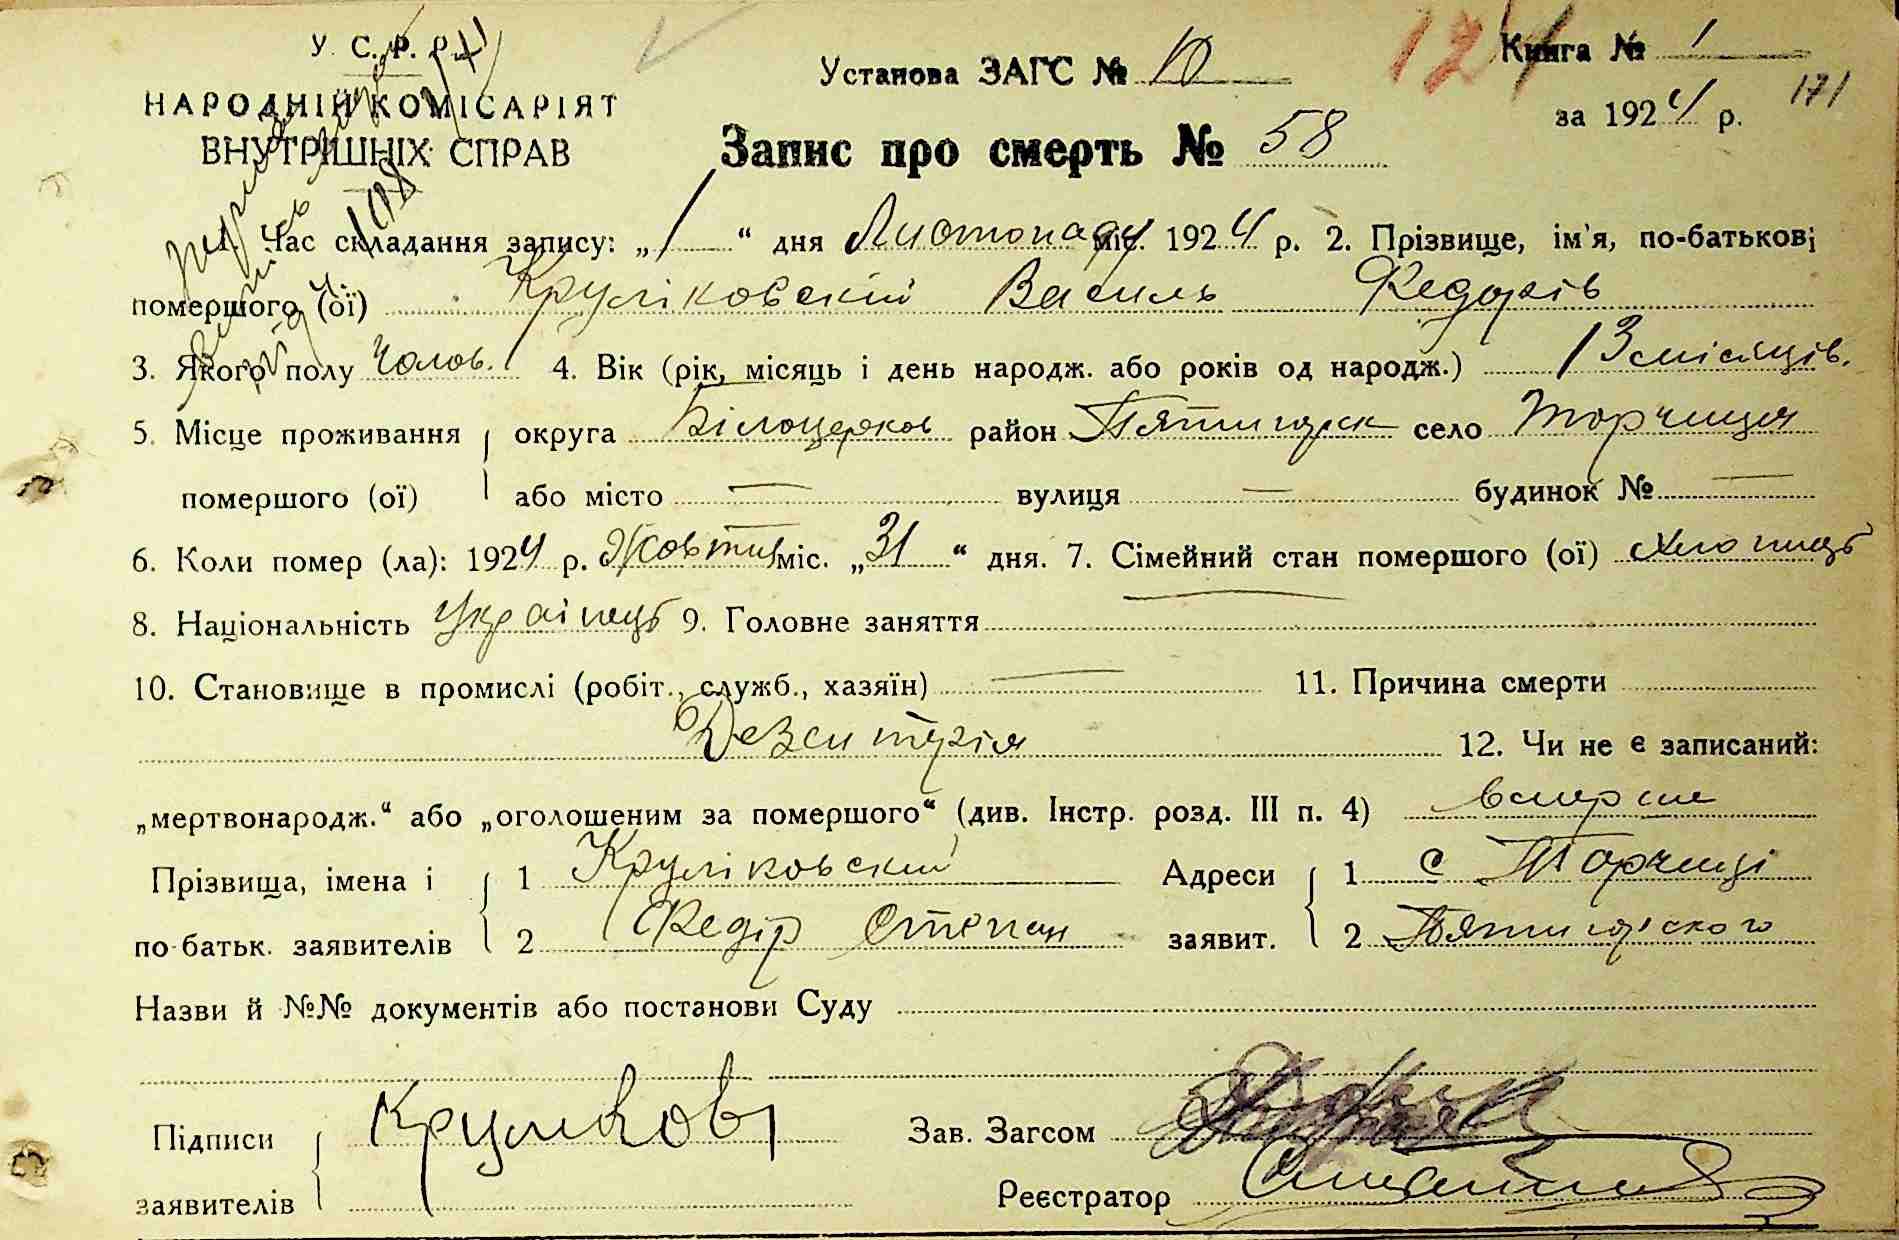 У. С. Р. Р.
НАРОДНІЙ КОМІСАРІЯТ
ВНУТРІШНІХ СПРАВ
Установа ЗАГС № 10
Книга № 1
за 1924 р.
171
Запис про смерть № 58
1. Час складання запису: „1“ дня Листопаду міс. 1924 р. 2. Прізвище, ім'я, по-батькові
помершого (ої) Круліковский Василь Федорів
3. Якого полу Чолов. 4. Вік (рік, місяць і день народж. або років од народж.) 13 місяців.
5. Місце проживання округа Білоцерков район Пятигорск село Торчиця
помершого (ої) або місто — вулиця — будинок № —
6. Коли помер (ла): 1924 р. Жовтня міс. „31“ дня. 7. Сімейний стан помершого (ої) хлопець
8. Національність Українець 9. Головне заняття —
10. Становище в промислі (робіт., служб., хазяїн) — 11. Причина смерти
Дезентерія 12. Чи не є записаний:
„мертвонародж.“ або „оголошеним за помершого“ (див. Інстр. розд. III п. 4) вмерше
Прізвища, імена і 1 Круліковский Адреси 1 с Торчиці
по-батьк. заявителів 2 Федір Степан заявит. 2 Пятигорского
Назви й №№ документів або постанови Суду
Підписи Круликові Зав. Загсом
заявителів Реєстратор